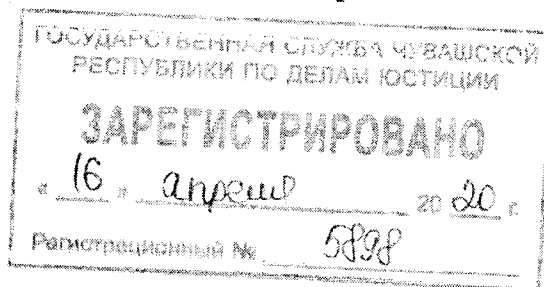 ГОСУДАРСТВЕННАЯ СЛУЖБА ЧУВАШСКОЙ
РЕСПУБЛИКИ ПО ДЕЛАМ ЮСТИЦИИ
ЗАРЕГИСТРИРОВАНО
« 16 » апреля 20 20 г.
Регистрационный № 5898